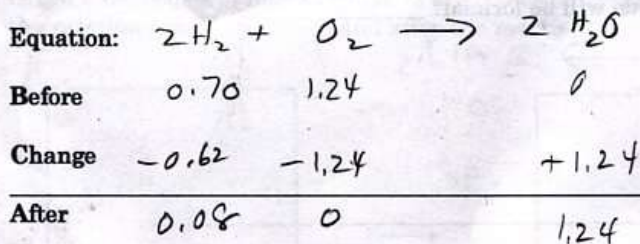 Equation: 2 H₂ + O₂ ⟶ 2 H₂O
Before 0.70 1.24 0
Change -0.62 -1.24 +1.24
After 0.08 0 1.24